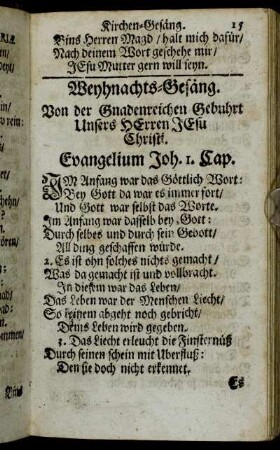 Kirchen-Gesäng. 15
Bins Herren Magd/ halt mich dafür/
Nach deinem Wort geschehe mir/
JEsu Mutter gern will seyn.
Weyhnachts-Gesäng.
Von der Gnadenreichen Gebuhrt
Unsers HErren JEsu
Christi.
Evangelium Joh. 1. Cap.
IM Anfang war das Göttlich Wort:
Bey Gott da war es immer fort/
Und Gott war selbst das Worte.
Im Anfang war dasselb bey Gott:
Durch selbes und durch sein Gebott/
All ding geschaffen wurde.
2. Es ist ohn solches nichts gemacht/
Was da gemacht ist und vollbracht.
In diesem war das Leben/
Das Leben war der Menschen Liecht/
So keinem abgeht noch gebricht/
Dems Leben wird gegeben.
3. Das Liecht erleucht die Finsternüß
Durch seinen schein mit Uberfluß:
Den sie doch nicht erkennet.
Es